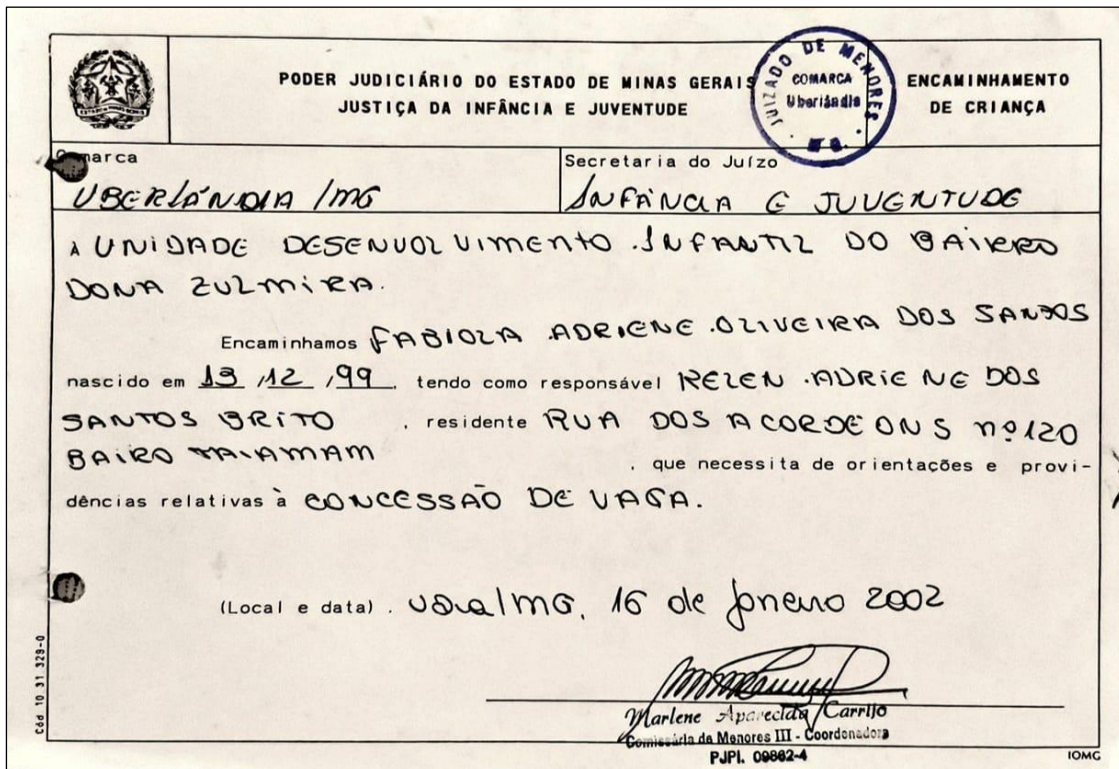 PODER JUDICIÁRIO DO ESTADO DE MINAS GERAIS
JUSTIÇA DA INFÂNCIA E JUVENTUDE
JUIZADO DE MENORES
COMARCA
Uberlândia
ENCAMINHAMENTO
DE CRIANÇA
Comarca
UBERLÂNDIA / MG
Secretaria do Juízo
INFÂNCIA E JUVENTUDE
À UNIDADE DESENVOLVIMENTO INFANTIL DO BAIRRO
DONA ZULMIRA.
Encaminhamos FABIOLA ADRIENE OLIVEIRA DOS SANTOS
nascido em 13 / 12 / 99, tendo como responsável KELEN ADRIENE DOS
SANTOS BRITO, residente RUA DOS ACORDEONS nº 120
BAIRO TAIAMAM, que necessita de orientações e provi-
dências relativas à CONCESSÃO DE VAGA.
(Local e data). Udia/MG, 16 de janeiro 2002
Marlene Aparecida Carrijo
Comissária de Menores III - Coordenadora
PJPI. 09862-4
Cód 10 31 329-0
IOMG